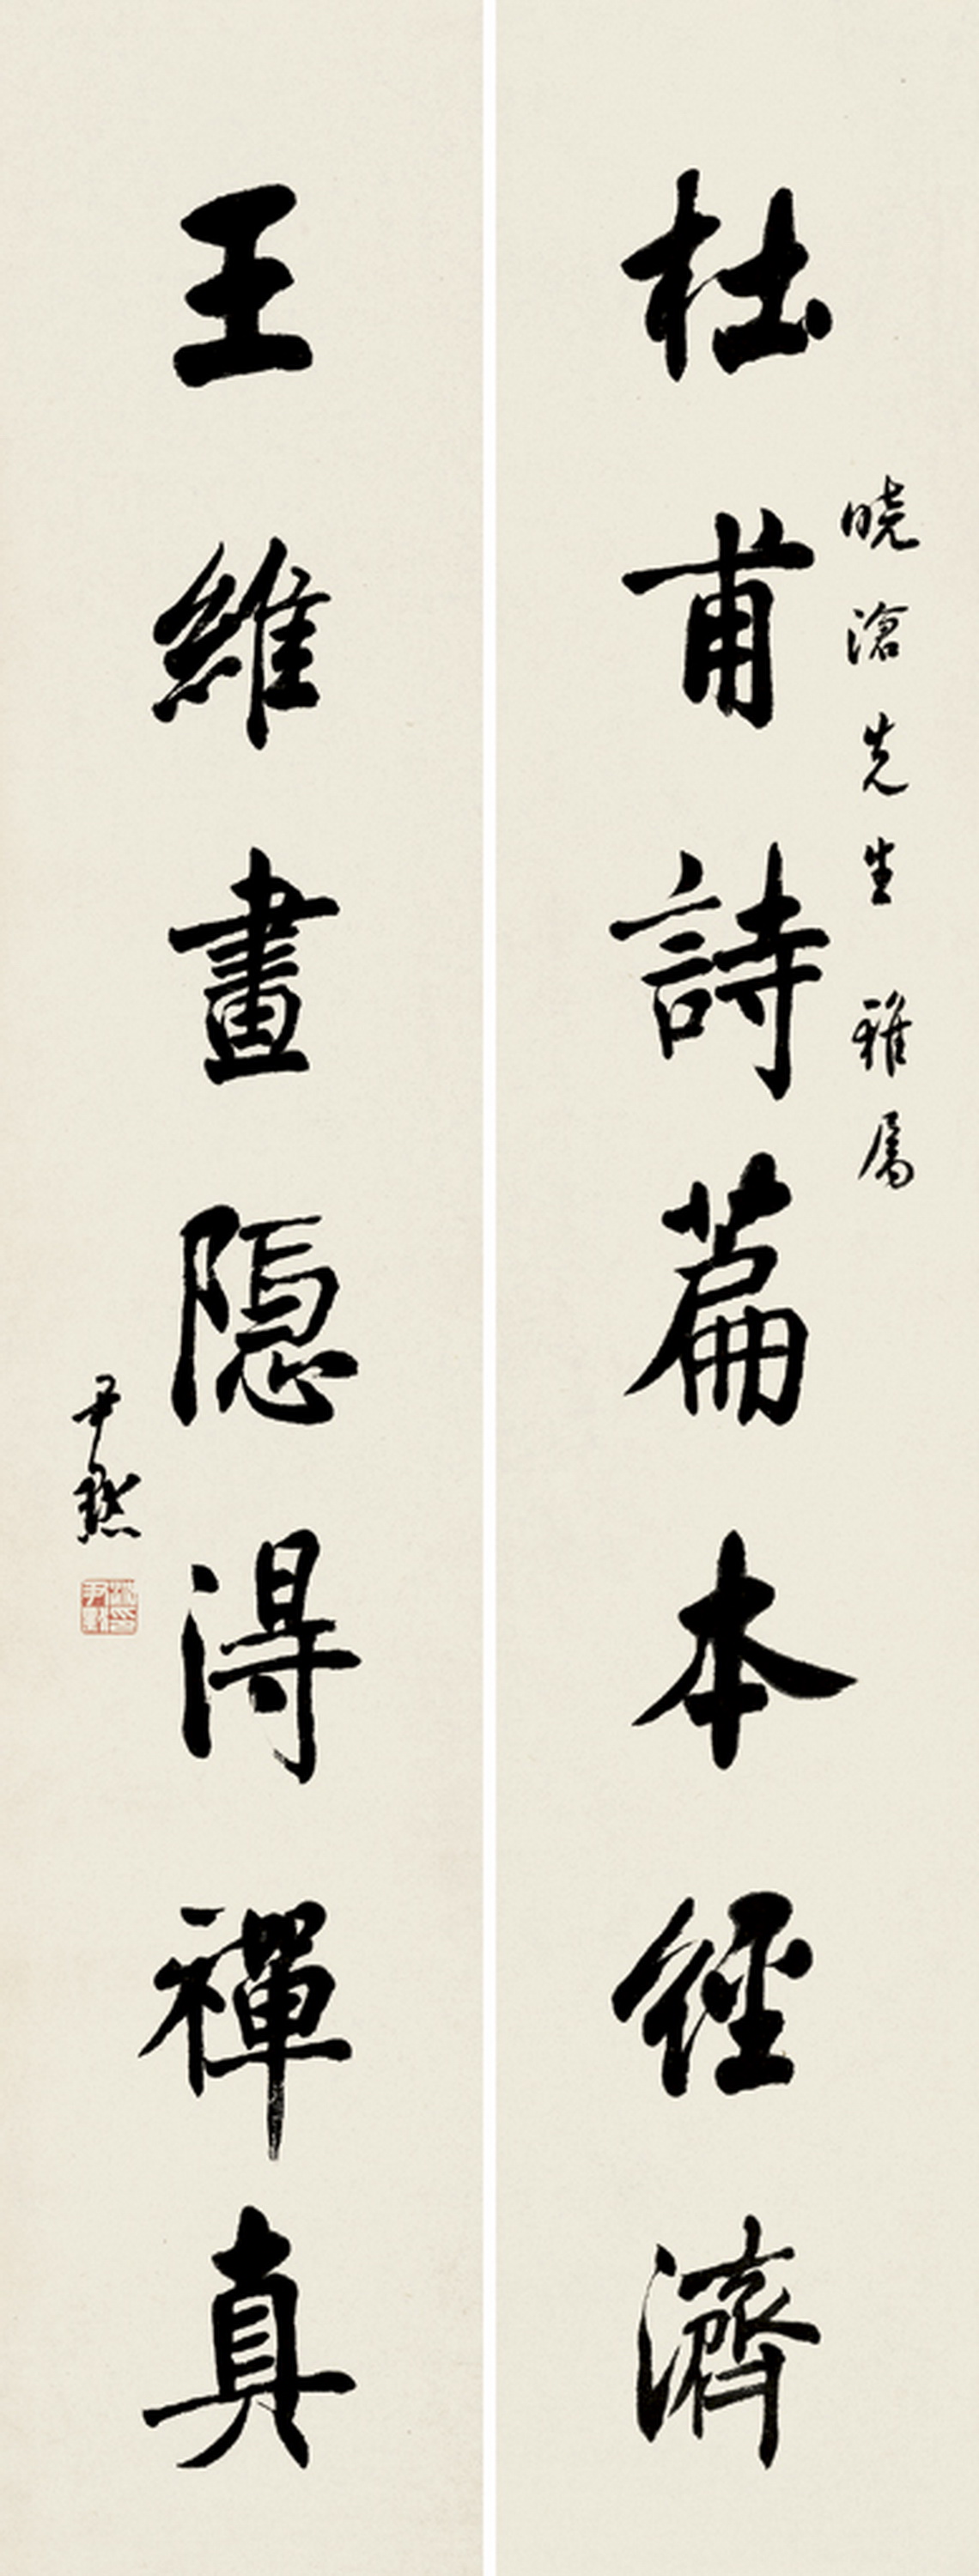 杜甫詩篇本經濟
曉滄先生雅屬
王維畫隱得禪真
尹默